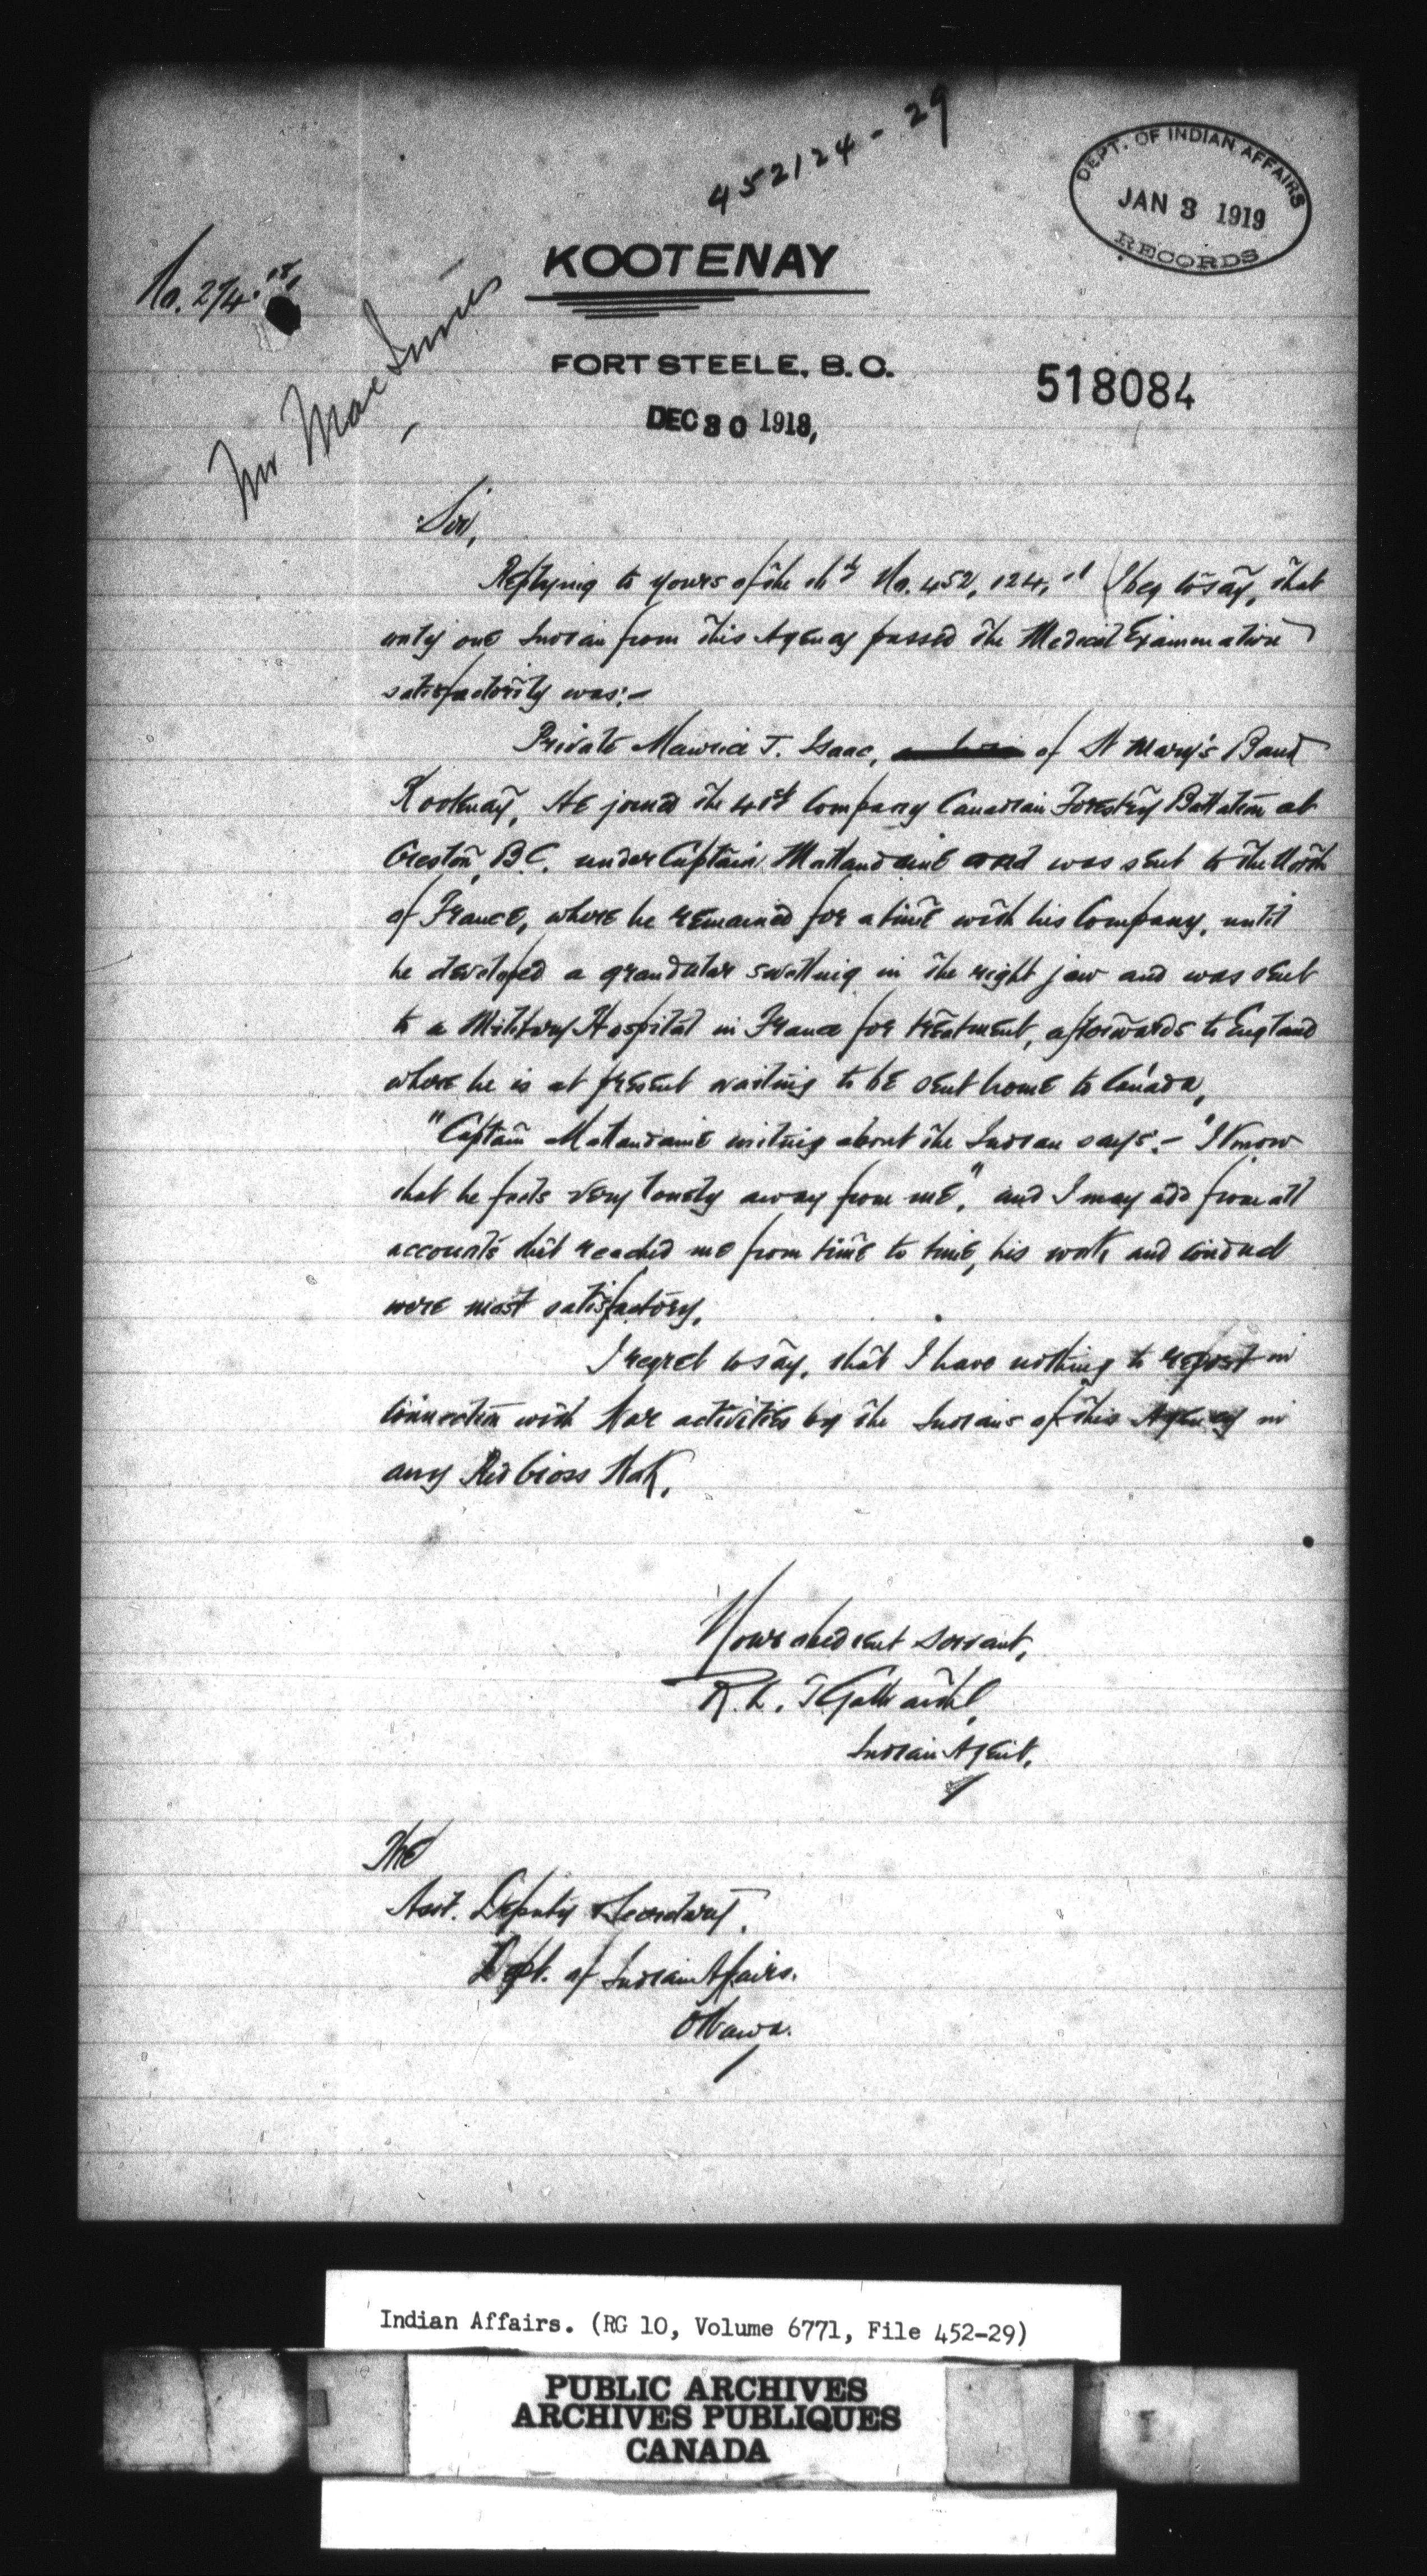 452124-29
DEPT. OF INDIAN AFFAIRS
JAN 3 1919
RECORDS
No. 274.
KOOTENAY
Mr. MacInnes
FORT STEELE, B.C.
518084
DEC 30 1918,
Sir,
Replying to yours of the No. 452,124, I beg to say, that
only one Indian from this Agency passed the Medical Examination
satisfactorily was:-
Private Maurice T. Isaac, of St Mary's Band
Kootenay, He joined the 41st Company Canadian Forestry Battalion at
Creston, B.C. under Captain Mallandaine and was sent to the North
of France, where he remained for a time with his Company, until
he developed a grandular swelling in the right jaw and was sent
to a Military Hospital in France for treatment, afterwards to England
where he is at present waiting to be sent home to Canada,
"Captain Mallandaine writing about the Indian says:- "I know
that he feels very lonely away from me", and I may add from all
accounts that reached me from time to time, his work and conduct
were most satisfactory.
I regret to say, that I have nothing to report in
connection with War activities by the Indians of this Agency in
any Red Cross Work.
Your obedient servant,
R.L.T. Galbraith
Indian Agent.
The
Asst. Deputy & Secretary,
Dept. of Indian Affairs.
Ottawa.
Indian Affairs. (RG 10, Volume 6771, File 452-29)
PUBLIC ARCHIVES
ARCHIVES PUBLIQUES
CANADA